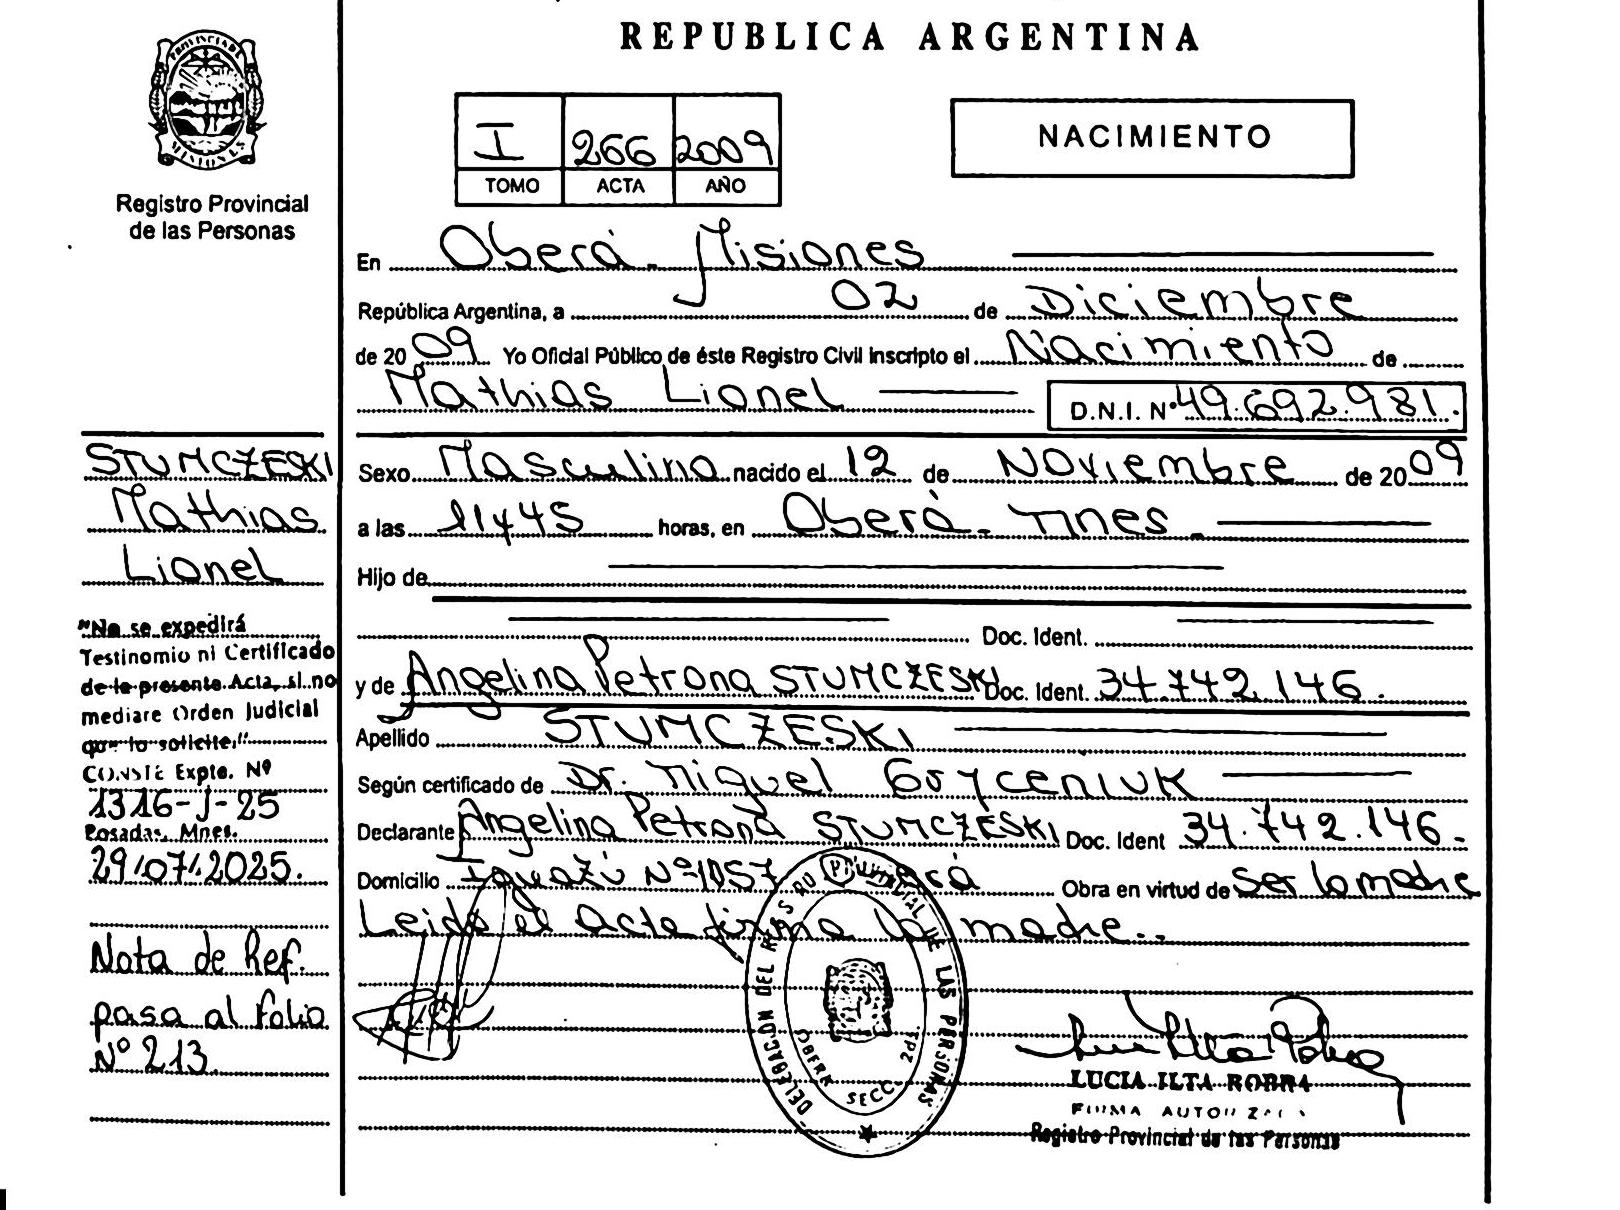 REPUBLICA ARGENTINA
PROVINCIA DE
MISIONES
Registro Provincial
de las Personas
I 266 2009
TOMO ACTA AÑO
NACIMIENTO
En Oberá - Misiones
República Argentina, a 02 de Diciembre
de 2009 Yo Oficial Público de éste Registro Civil inscripto el Nacimiento de
Mathias Lionel D.N.I. Nº 49.692.981.
Sexo Masculino nacido el 12 de Noviembre de 2009
a las 11y45 horas, en Oberá - Mnes -
Hijo de
Doc. Ident.
y de Angelina Petrona STUMCZESKI Doc. Ident. 34.742.146.
Apellido STUMCZESKI
Según certificado de Dr. Miguel
Declarante Angelina Petrona STUMCZESKI Doc. Ident 34.742.146.
Domicilio Iguazú Nº 1057 Obra en virtud de Ser la madre
Leido el acta firma la madre..
STUMCZESKI
Mathias
Lionel
"No se expedirá
Testinomio ni Certificado
de la presente Acta, si no
mediare Orden Judicial
que lo solicite,"
CONSTE Expte. Nº
1316-J-25
Posadas, Mnes.
29/07/2025.
Nota de Ref.
pasa al folio
Nº 213
DELEGACION DEL REGISTRO PROVINCIAL DE LAS PERSONAS
OBERA SECC. 2da.
LUCIA ILTA
FIRMA AUTORIZADA
Registro Provincial de las Personas